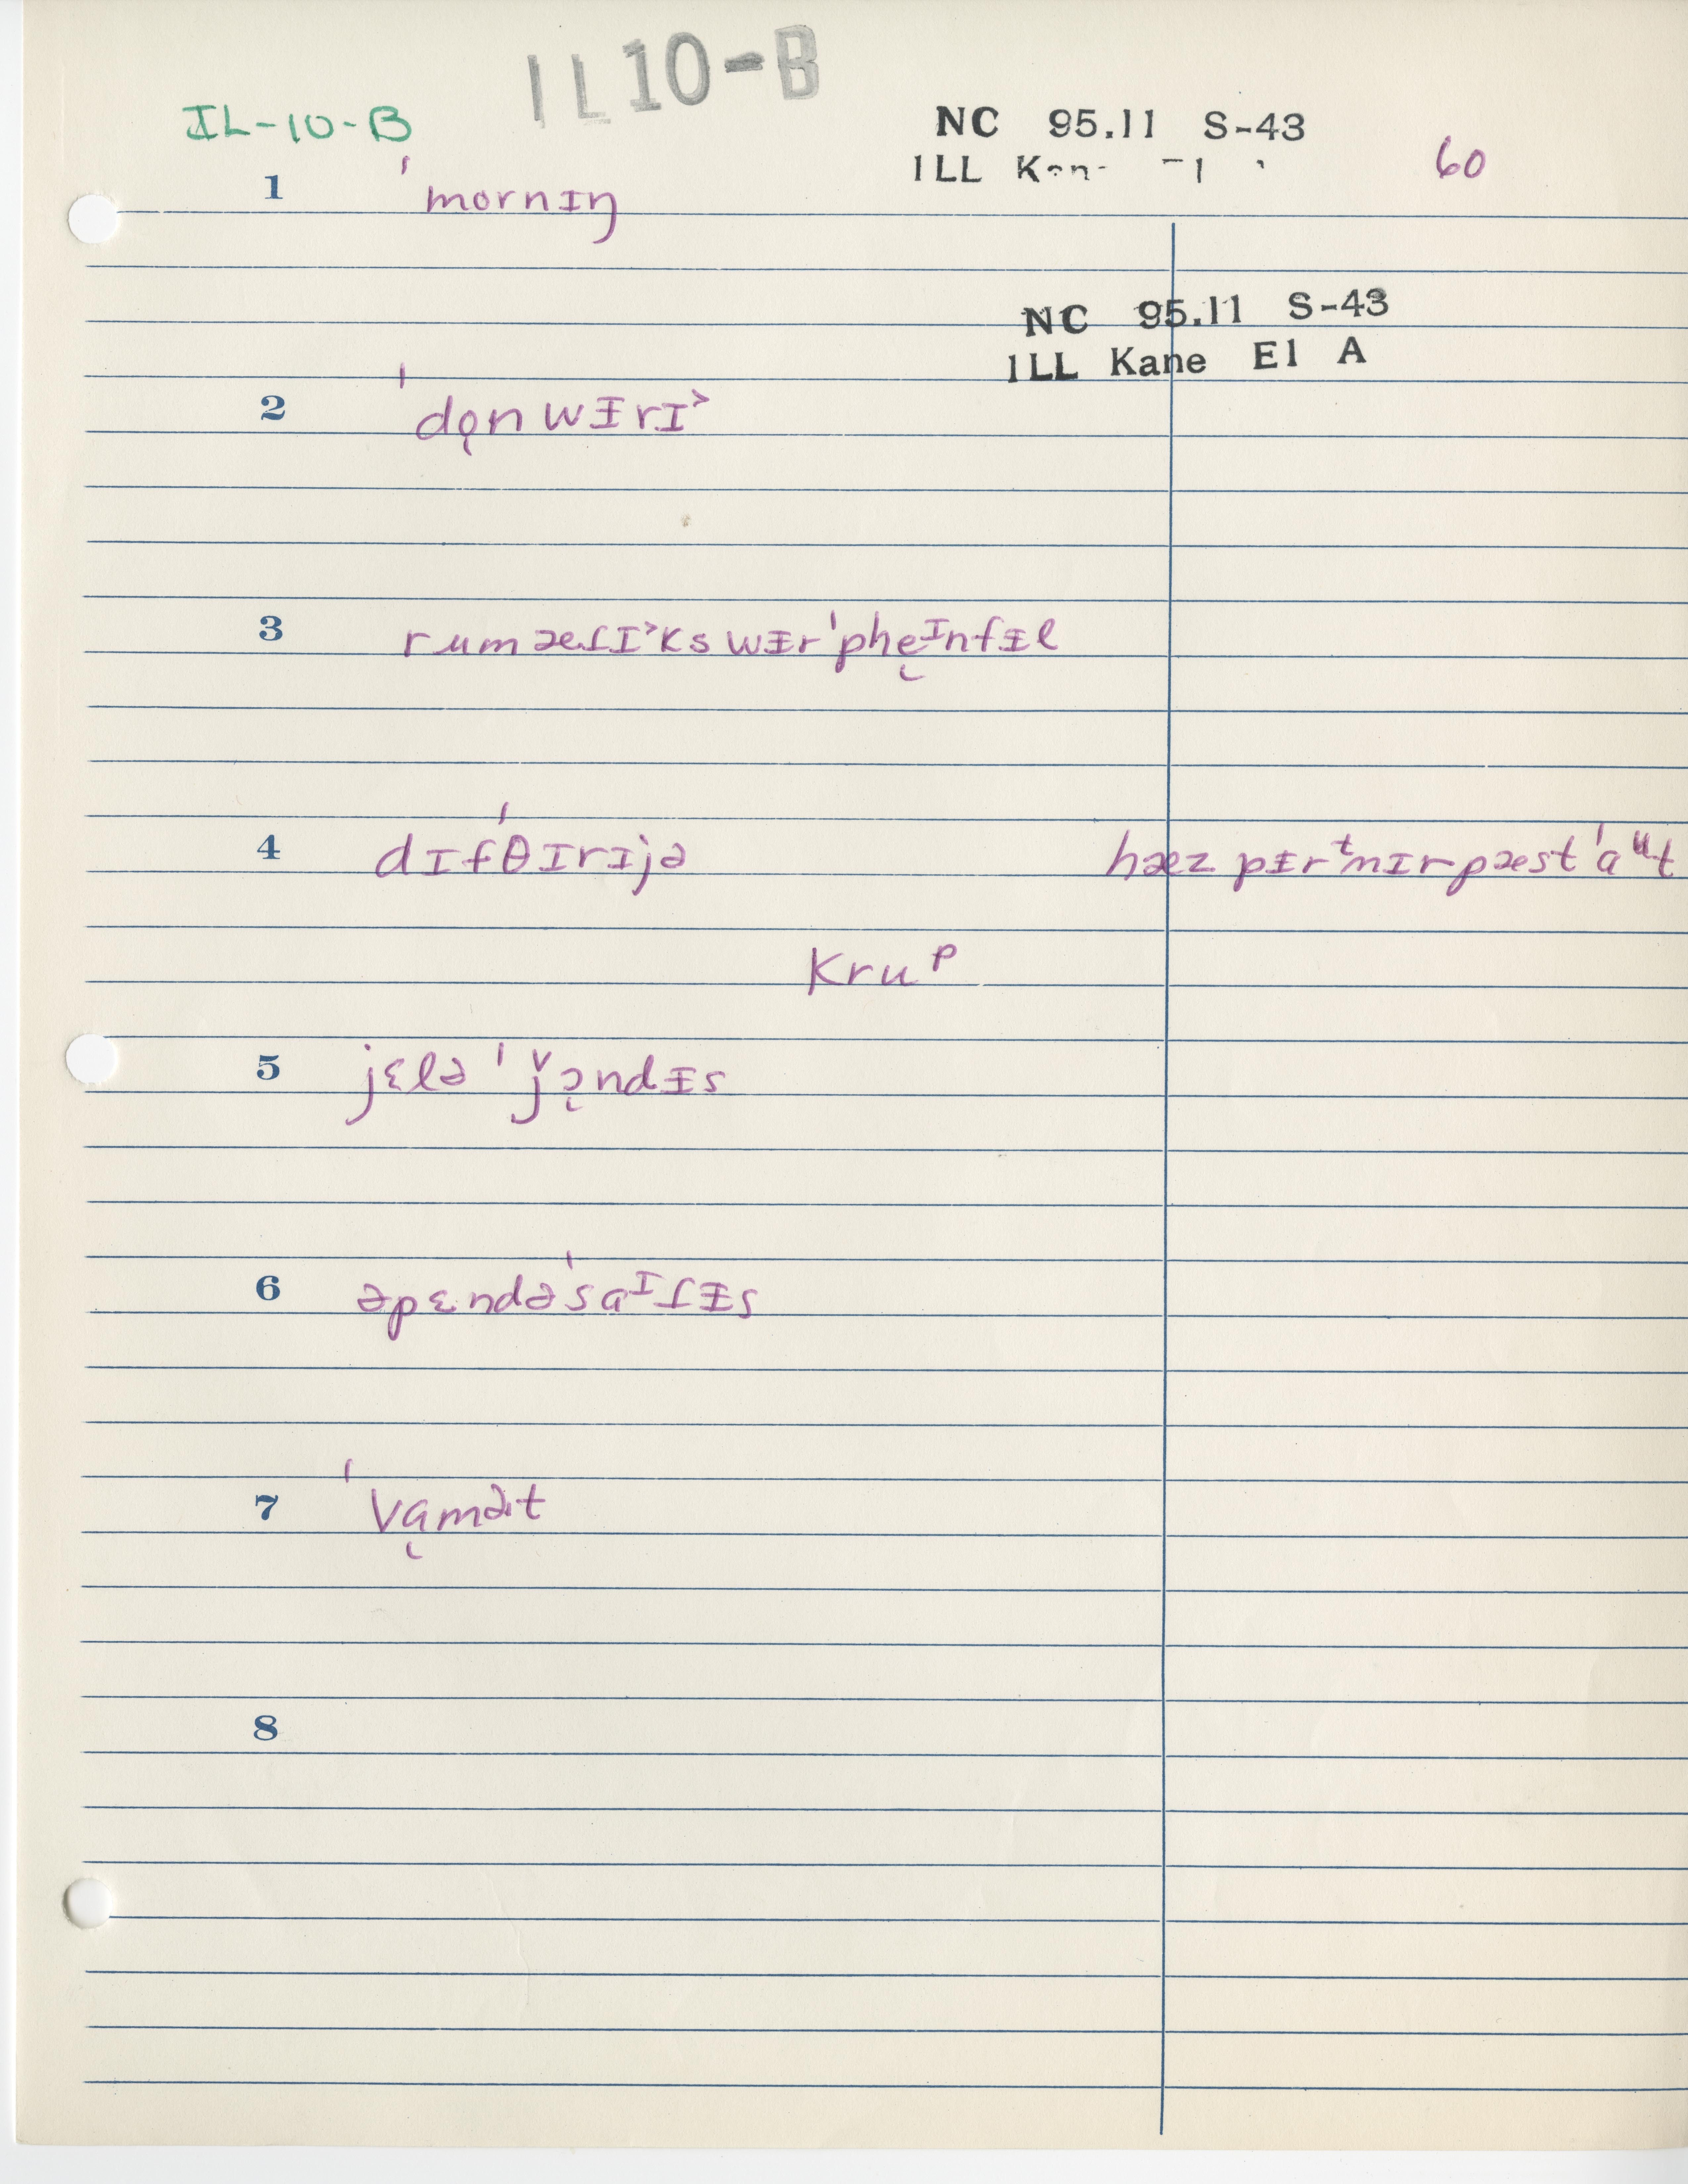 IL10-B
IL-10-B
NC 95.11 S-43
ILL
60
1 ˈmornɪŋ
NC 95.11 S-43
ILL Kane El A
2 ˈdo̜n wᵻrɪ˃
3 rumæɾɪ˃ks wᵻr ˈphe̜ᶦnfᵻl
4 dɪfˈθɪrɪjə hæz pᵻrᵗnɪr pæst ˈaᵘt
kruᵖ
5 jɛlə ˈǰɔ̜ndᵻs
6 əpɛndəˈsaᶦɾᵻs
7 ˈvɑ̜mət
8